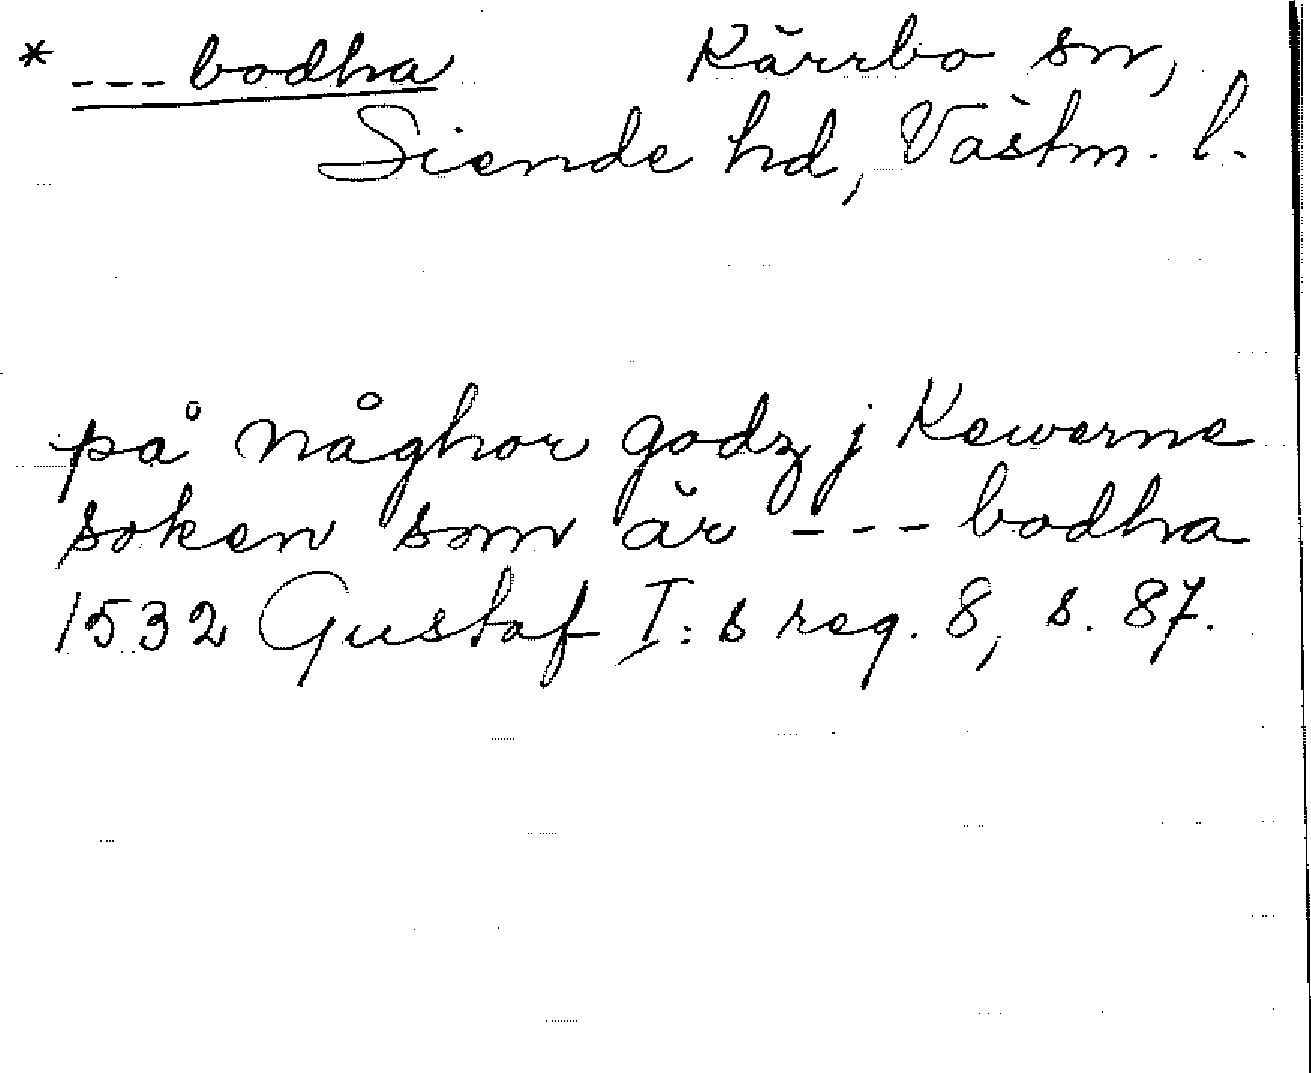 * ---bodha Kärrbo sn,
Siende hd, Västm. l.
på någhor godz j Kewerne
soken som är ---bodha
1532 Gustaf I:s reg. 8, s. 87.